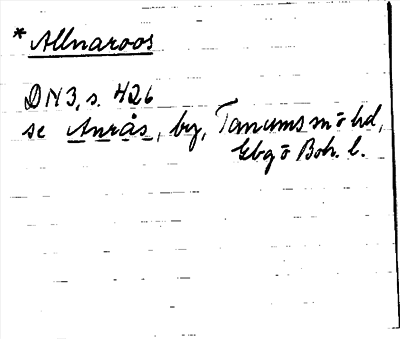 * Allnaroos
DN 3, s. 426
se Anrås, by, Tanums sn o hd,
Gbg o Boh. l.